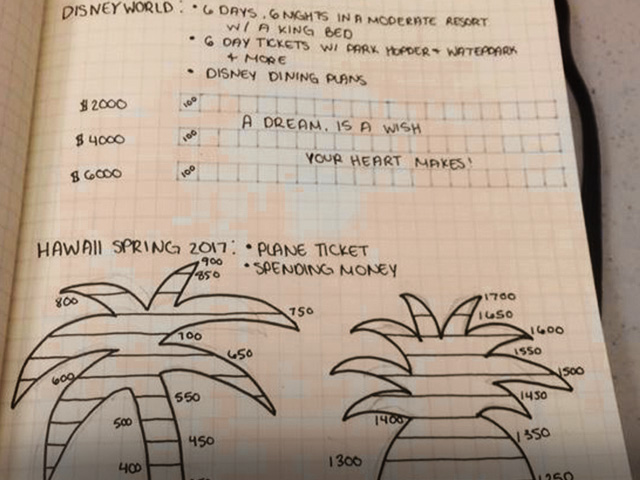 DISNEYWORLD: • 6 DAYS, 6 NIGHTS IN A MODERATE RESORT
W/ A KING BED
• 6 DAY TICKETS W/ PARK HOPPER + WATERPARK
+ MORE
• DISNEY DINING PLANS
$2000 100
A DREAM, IS A WISH
$4000 100
YOUR HEART MAKES!
$6000 100
HAWAII SPRING 2017: • PLANE TICKET
• SPENDING MONEY
900
850
800
750
700
650
600
550
500
450
400
1700
1650
1600
1550
1500
1450
1400
1350
1300
1250